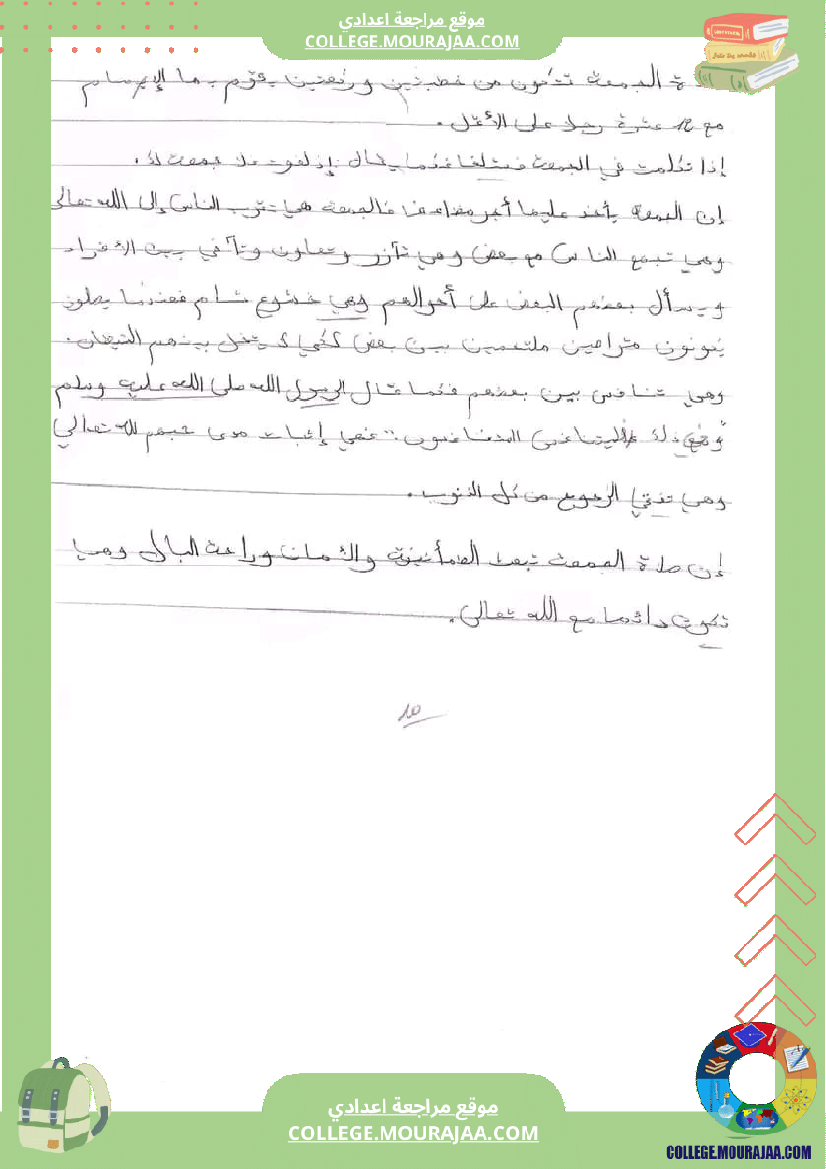 موقع مراجعة اعدادي
COLLEGE.MOURAJAA.COM
ة الجمعة تتكون من خطبتين وركعتين يقوم بها الإمام
مع 12 عشرة رجل على الأقل.
إذا تكلمت في الجمعة فكما يقال إذ لغوت فلا جمعة لك.
إن الجمعة يأخذ عليها أجر مضاعف فالجمعة هي تقرب الناس إلى الله تعالى
وهي تجمع الناس مع بعض وهي تآزر وتعاون وتآخي بين الأفراد
ويسأل بعضهم البعض على أحوالهم وهي خشوع تام فعندما يصلون
يكونون متراصين ملتحمين بين بعض لكي لا يدخل بينهم الشيطان.
وهي تنافس بين بعضهم فكما قال الرسول الله صلى الله عليه وسلم
"وفي ذلك فاليتنافس المتنافسون" فهي إثبات مدى حبهم لله تعالى
وهي تذكي الرجوع من كل الذنوب.
إن صلاة الجمعة تبعث الطمأنينة والأمان وراحة البال وهي
تكون دائما مع الله تعالى.
موقع مراجعة اعدادي
COLLEGE.MOURAJAA.COM
COLLEGE.MOURAJAA.COM